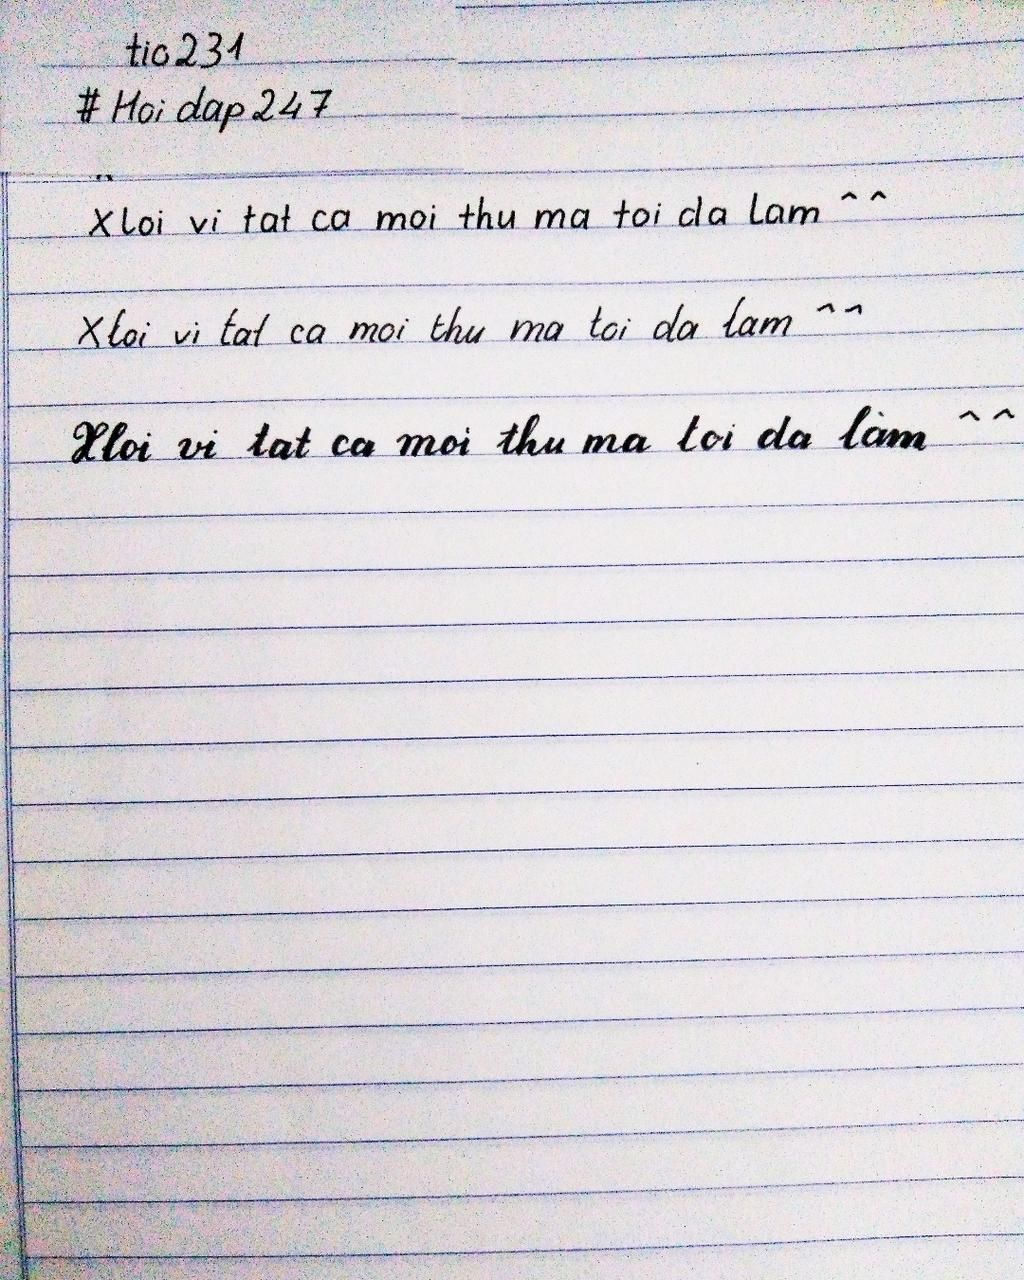 tio231
# Hoidap247
Xloi vi tat ca moi thu ma toi da lam ^^
Xloi vi tat ca moi thu ma toi da lam ^^
Xloi vi tat ca moi thu ma toi da làm ^^